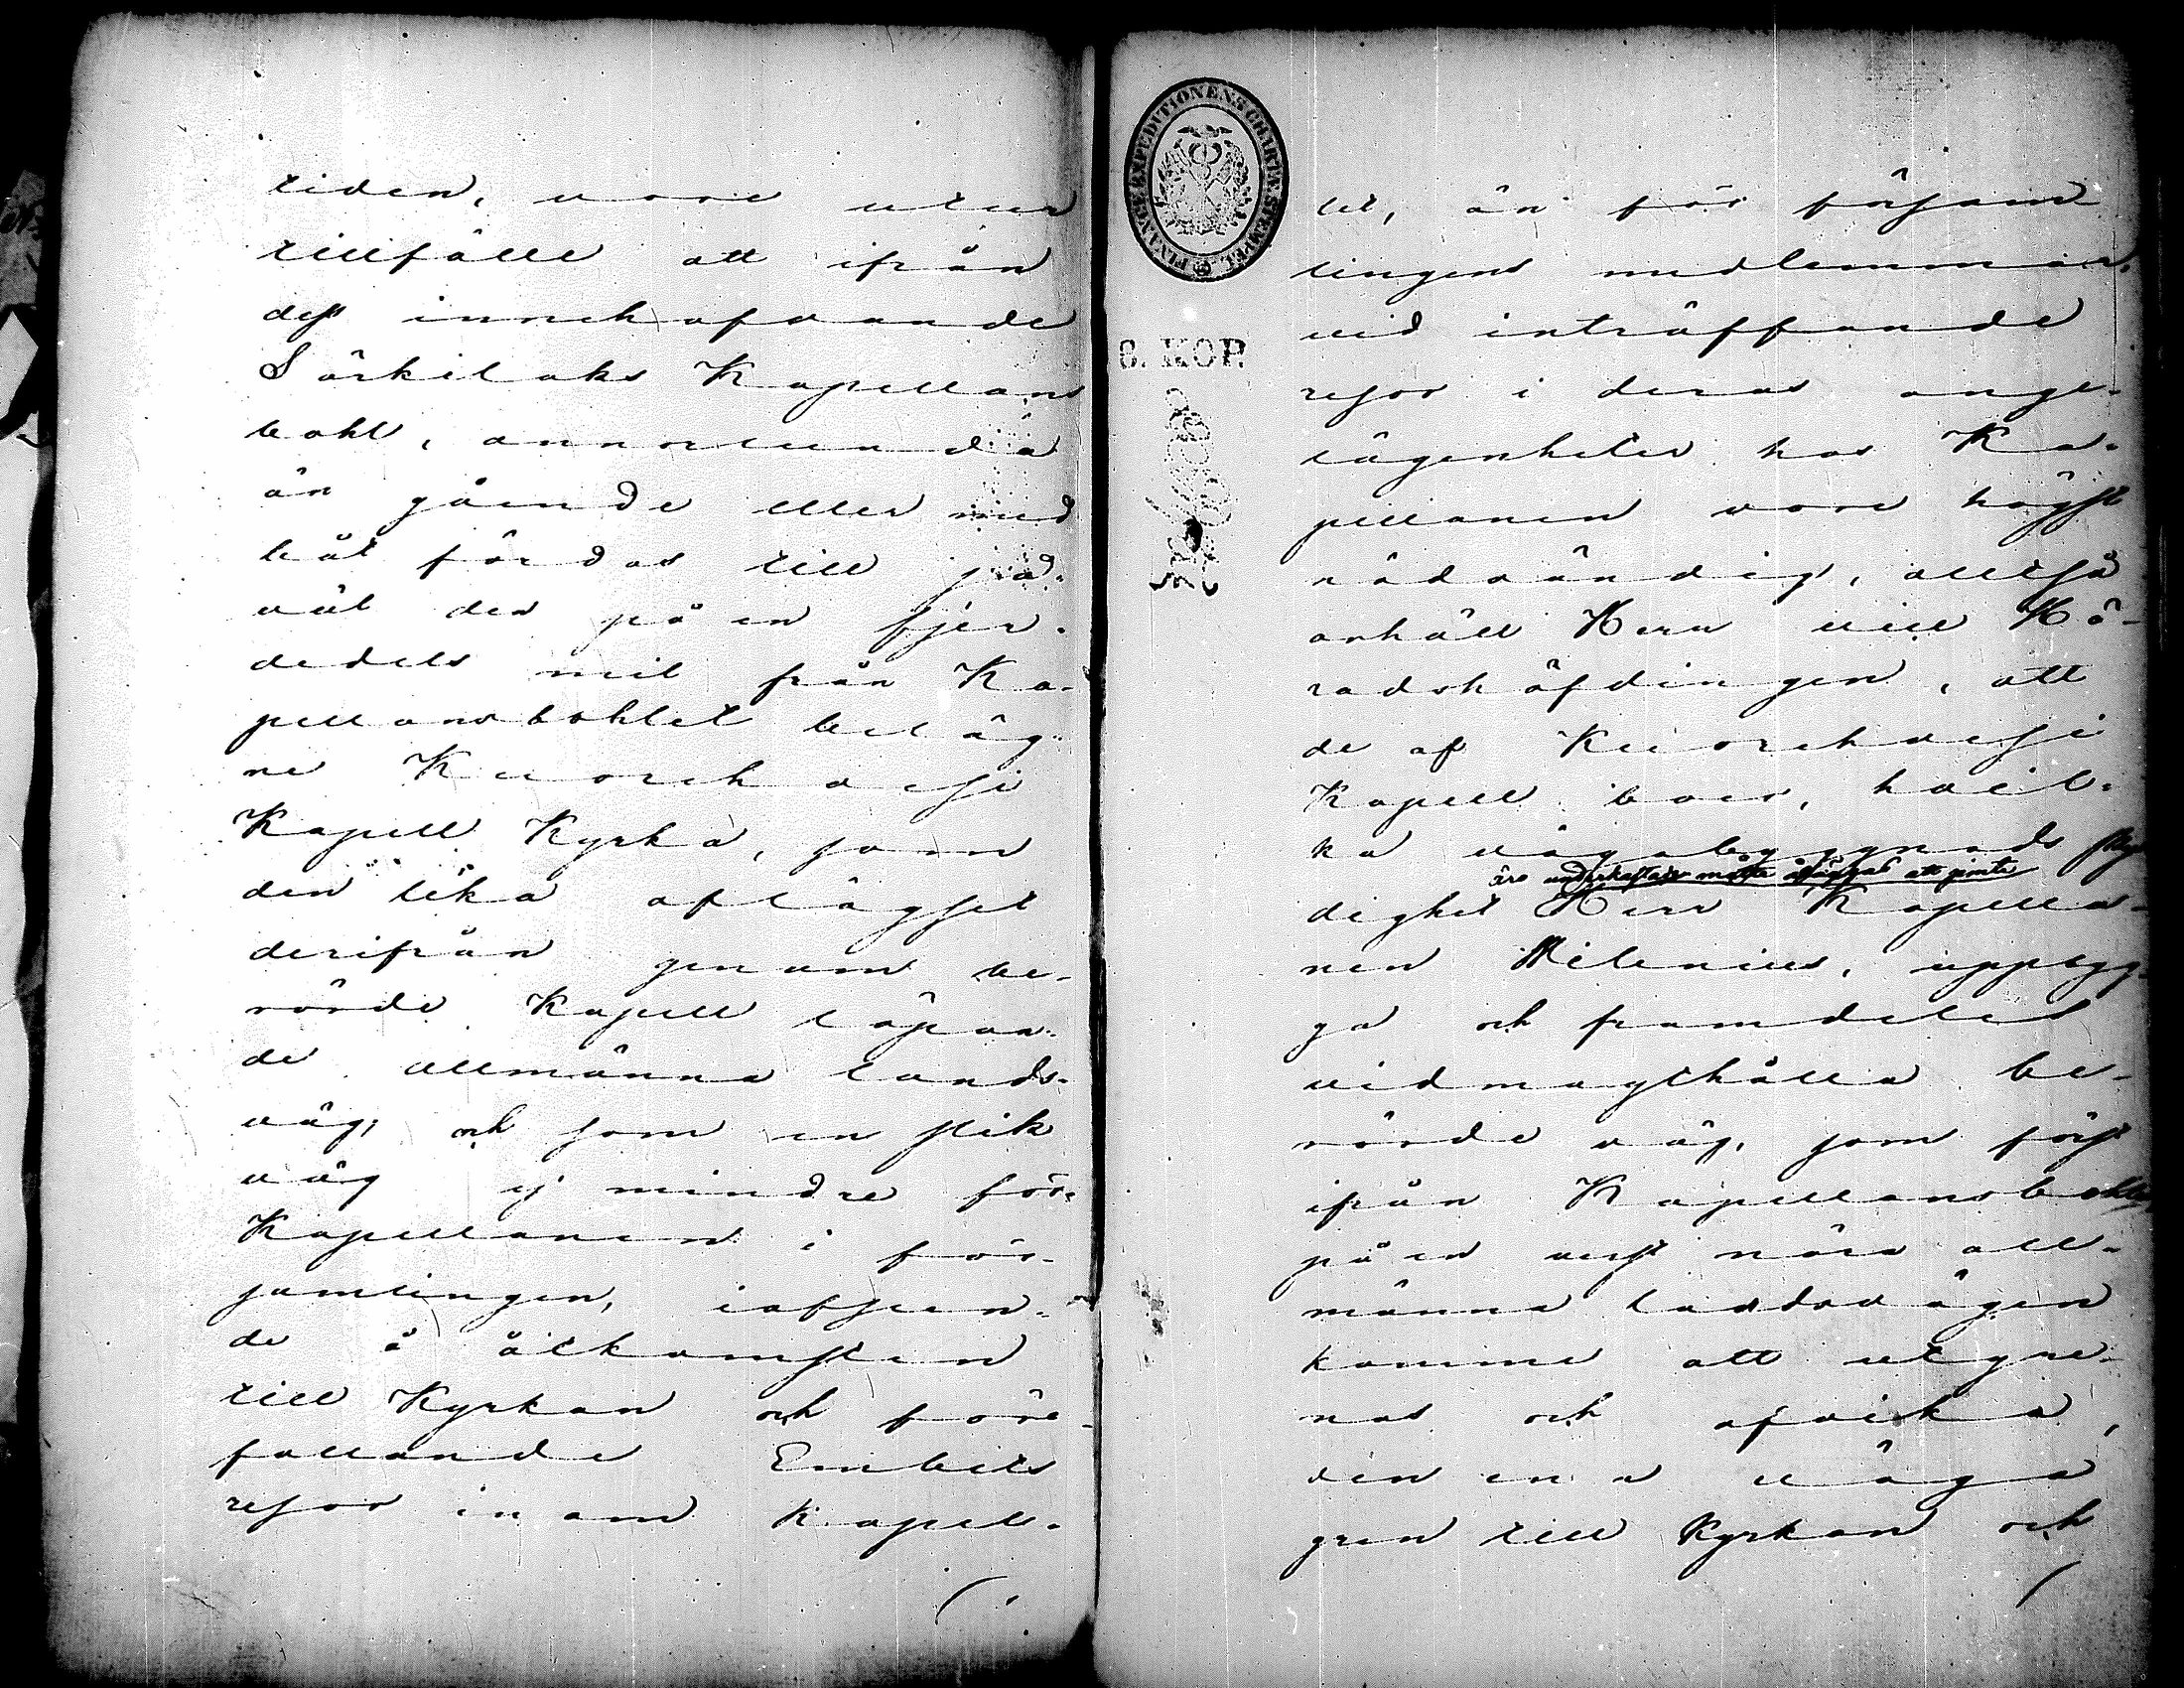 tiden, vore utur
tillfälle att ifrån
dess innehafvande
Särkilaks Kapellans
bohl, annorlunda
än gående eller med
båt färdas till så-
väl den på en fjer-
dedels mil från Ka-
pellansbohlet beläg-
ne Kuorehvesi
Kapell Kyrka, som
den lika aflägset
derifrån genom be-
rörde Kapell löpan-
de allmänna lands-
väg, och som en slik
väg ej mindre för
Kapellanen i för-
samlingen, iafseen-
de å åtkomsten
till Kyrkan och före-
fallande Embets
resor inom Kapell-
FINANCE EXPEDITIONENS CHARTÆ STEMPEL
6. KOP.
let, än för försam
lingens medlemmar,
vid inträffande
resor i deras ange-
lägenheter hos Ka-
pellanen vore högst
nödvändig, alltså
anhåll Herr vice Hä-
radshöfdingen, att
de af Kuorehvesi
Kapell boer, hvil-
ka vägabyggnads skyl
äro underkastade måtte åläggas att jemte
dighet Herr Kapella-
nen Milenius, uppbyg-
ga och framdeles
vidmagthålla be-
rörde väg, som först
ifrån Kapellansbohlet
på en verst nära all-
männa landsvägen
komme att utgre-
nas och afvika,
den ena väga
gren till Kyrkan och